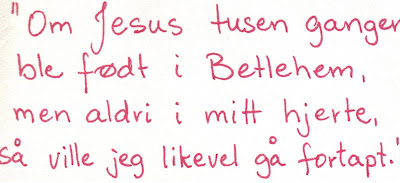 "Om Jesus tusen ganger
ble født i Betlehem,
men aldri i mitt hjerte,
så ville jeg likevel gå fortapt."